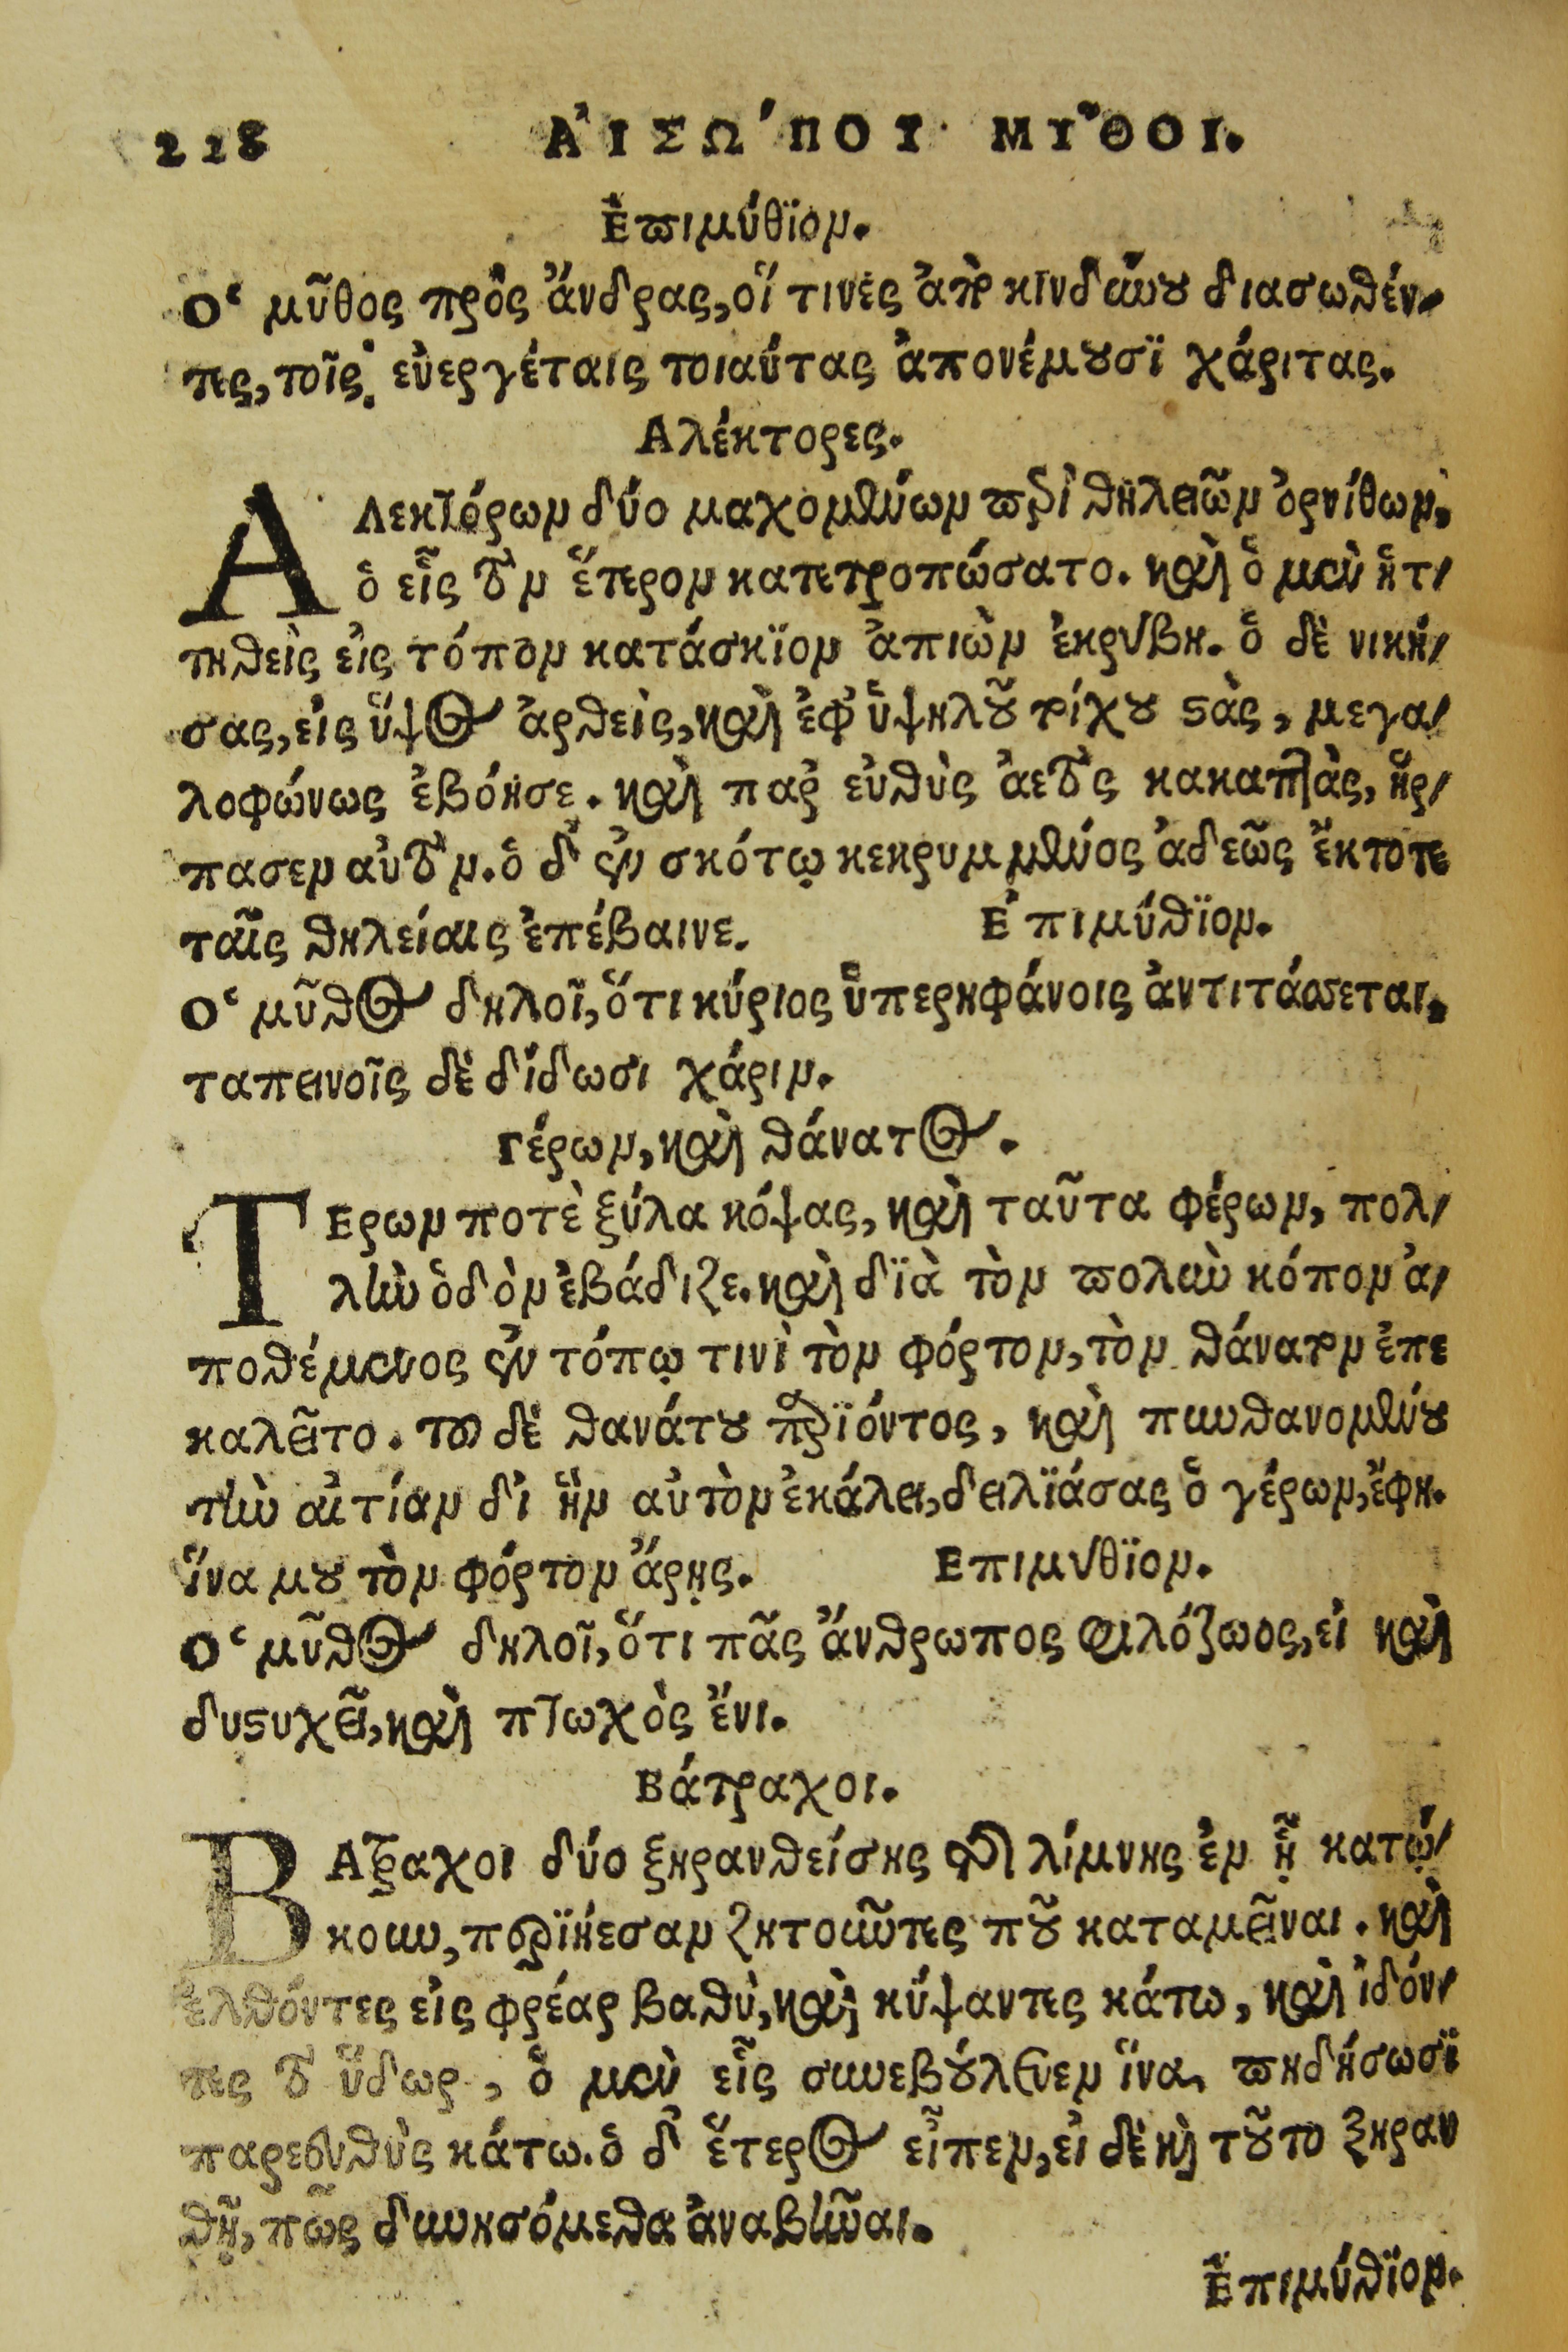 218 ΑἸΣΩ'ΠΟΥ ΜΥ͂ΘΟΙ.
Ἐπιμύθϊον.
Ὁ μῦθος πρὸς ἄνδρας, οἵ τινές ἀπὸ κινδύνου διασωθέν-
τες, τοῖς εὐεργέταις τοιαύτας ἀπονέμουσϊ χάριτας.
Αλέκτορες.
ΑΛεκτόρων δύο μαχομένων περὶ θηλειῶν ὀρνίθων,
ὁ εἷς τὸν ἕτερον κατετροπώσατο. καὶ ὁ μὲν ἡτ-
τηθεὶς εἰς τόπον κατάσκϊον ἀπιὼν ἐκρύβη. ὁ δὲ νική-
σας, εἰς ὕψος ἀρθεὶς, καὶ ἐφ' ὑψηλοῦ τοίχου στὰς, μεγα-
λοφώνως ἐβόησε. καὶ παρ' εὐθὺς ἀετὸς κακαπτὰς, ἥρ-
πασεν αὐτὸν. ὁ δ' ἐν σκότῳ κεκρυμμένος ἀδεῶς ἔκτοτε
ταῖς θηλείαις ἐπέβαινε. Ἐπιμύθϊον.
Ὁ μῦθος δηλοῖ, ὅτι κύριος ὑπερηφάνοις ἀντιτάσσεται,
ταπεινοῖς δὲ δίδωσι χάριν.
Γέρων, καὶ θάνατος.
ΓΕρων ποτὲ ξύλα κόψας, καὶ ταῦτα φέρων, πολ-
λὴν ὁδὸν ἐβάδιζε. καὶ δϊὰ τὸν πολὺν κόπον ἀ-
ποθέμενος ἐν τόπῳ τινὶ τὸν φόρτον, τὸν θάνατον ἐπε
καλεῖτο. τοῦ δὲ θανάτου προϊόντος, καὶ πυνθανομένου
τὴν αἰτίαν δι' ἣν αὐτὸν ἐκάλει, δειλϊάσας ὁ γέρων, ἔφη.
ἵνα μου τὸν φόρτον ἄρῃς. Επιμύθϊον.
Ὁ μῦθος δηλοῖ, ὅτι πᾶς ἄνθρωπος φιλόζωος, εἰ καὶ
δυστυχεῖ, καὶ πτωχὸς ἔνι.
Βάτραχοι.
ΒΑτραχοι δύο ξηρανθείσης τῆς λίμνης ἐν ᾗ κατῴ-
κουν, προϊήεσαν ζητοῦντες ποῦ καταμεῖναι. καὶ
ἐλθόντες εἰς φρέαρ βαθὺ, καὶ κύψαντες κάτω, καὶ ἰδόν-
τες τὸ ὕδωρ, ὁ μὲν εἷς συνεβούλευεν ἵνα πηδήσωσϊ
παρευθὺς κάτω. ὁ δ' ἕτερος εἶπεν, εἰ δὲ καὶ τοῦτο ξηραν
θῇ, πῶς δυνησόμεθα ἀναβῆναι.
Ἐπιμύθϊον.